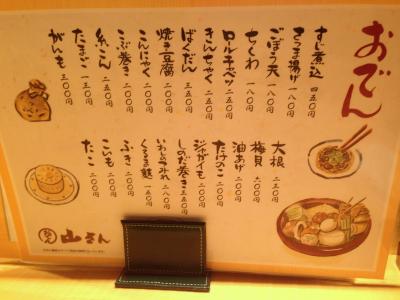 おでん
すじ煮込 四五〇円
さつま揚げ 一八〇円
ごぼう天 一八〇円
ちくわ 一八〇円
ロールキャベツ 二五〇円
きんちゃく 二五〇円
ばくだん 三五〇円
焼き豆腐 二〇〇円
こんにゃく 二〇〇円
こぶ巻き 二〇〇円
糸こん 二五〇円
たまご 一三〇円
がんも 三〇〇円
大根 二三〇円
梅貝 六〇〇円
油あげ 二〇〇円
たけのこ 二〇〇円
ジャガイモ 二〇〇円
しのだ巻き 三五〇円
いわしつみれ 二八〇円
くるま麩 一五〇円
ふき 二〇〇円
こいも 二〇〇円
たこ 三〇〇円
山さん